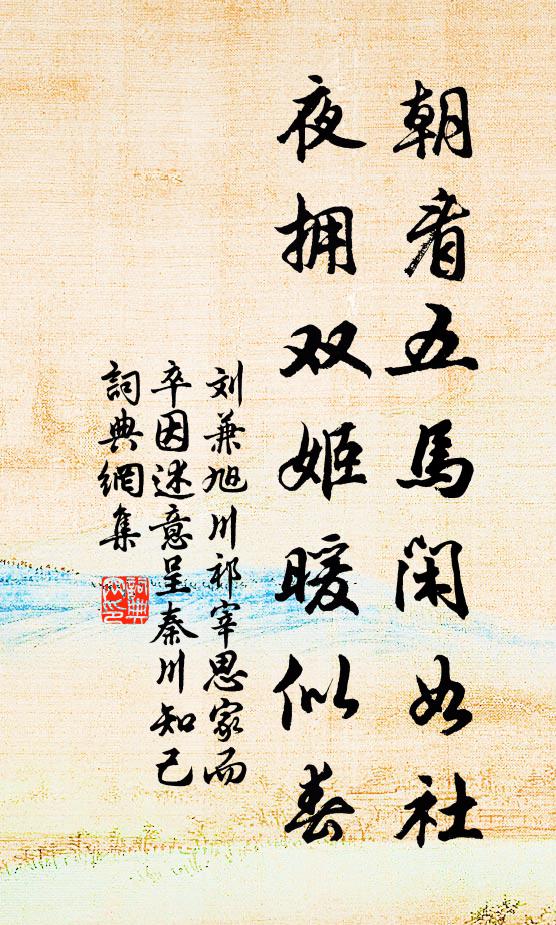 朝看五馬闲如社
夜拥双姬暖似春
刘兼旭川祁宰思家而
卒因述意呈秦川知己
詞典網集